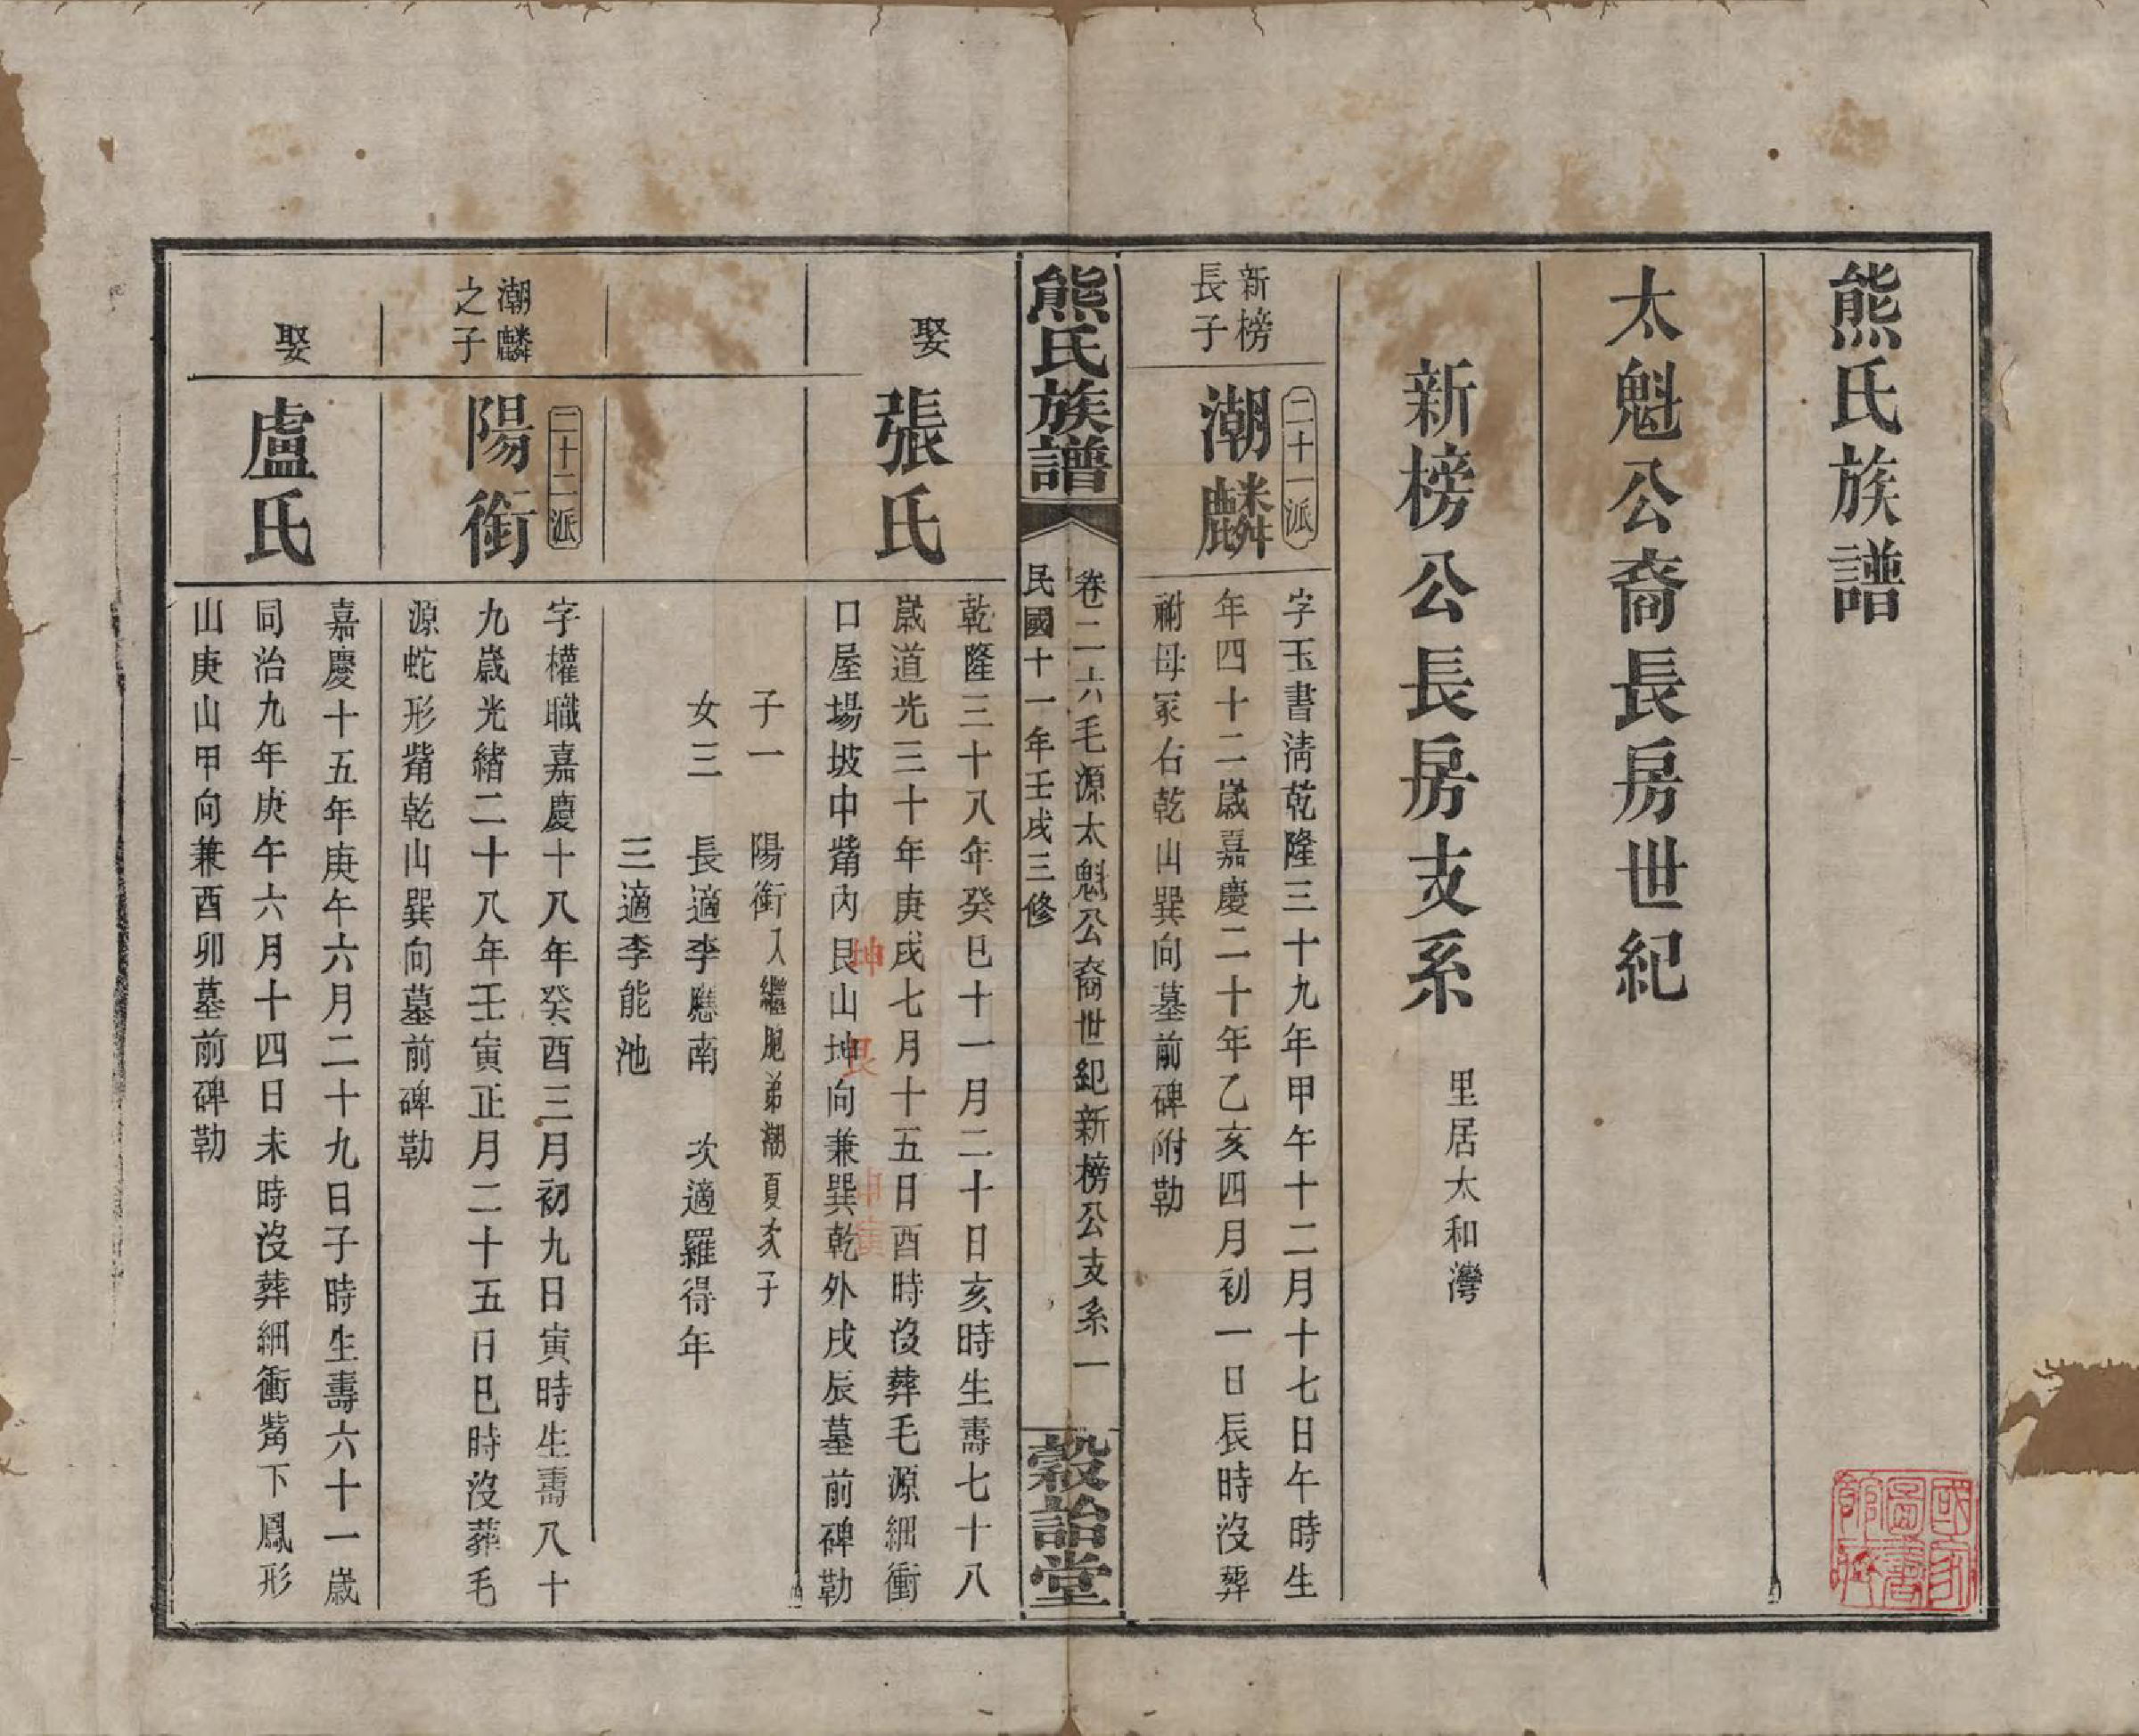 熊氏族譜
太魁公裔長房世紀
新榜公長房支系
里居太和灣
新榜
長子
二十一派
潮麟
字玉書淸乾隆三十九年甲午十二月十七日午時生
年四十二歲嘉慶二十年乙亥四月初一日辰時沒葬
祔母冢右乾山巽向墓前碑附勒
熊氏族譜
卷二一六毛源太魁公裔世紀新榜公支系一
民國十一年壬戌三修
穀詒堂
娶
張氏
乾隆三十八年癸巳十一月二十日亥時生壽七十八
歲道光三十年庚戌七月十五日酉時沒葬毛源細衝
口屋場坡中觜內艮山坤向兼巽乾外戌辰墓前碑勒
坤
艮
申寅
子一 陽銜入繼胞弟潮夏次子
女三 長適李應南 次適羅得年
三適李能池
潮麟
之子
二十二派
陽銜
字權職嘉慶十八年癸酉三月初九日寅時生壽八十
九歲光緖二十八年壬寅正月二十五日巳時沒葬毛
源蛇形觜乾山巽向墓前碑勒
娶
盧氏
嘉慶十五年庚午六月二十九日子時生壽六十一歲
同治九年庚午六月十四日未時沒葬細衝觜下鳳形
山庚山甲向兼酉卯墓前碑勒
國家
圖書
館藏